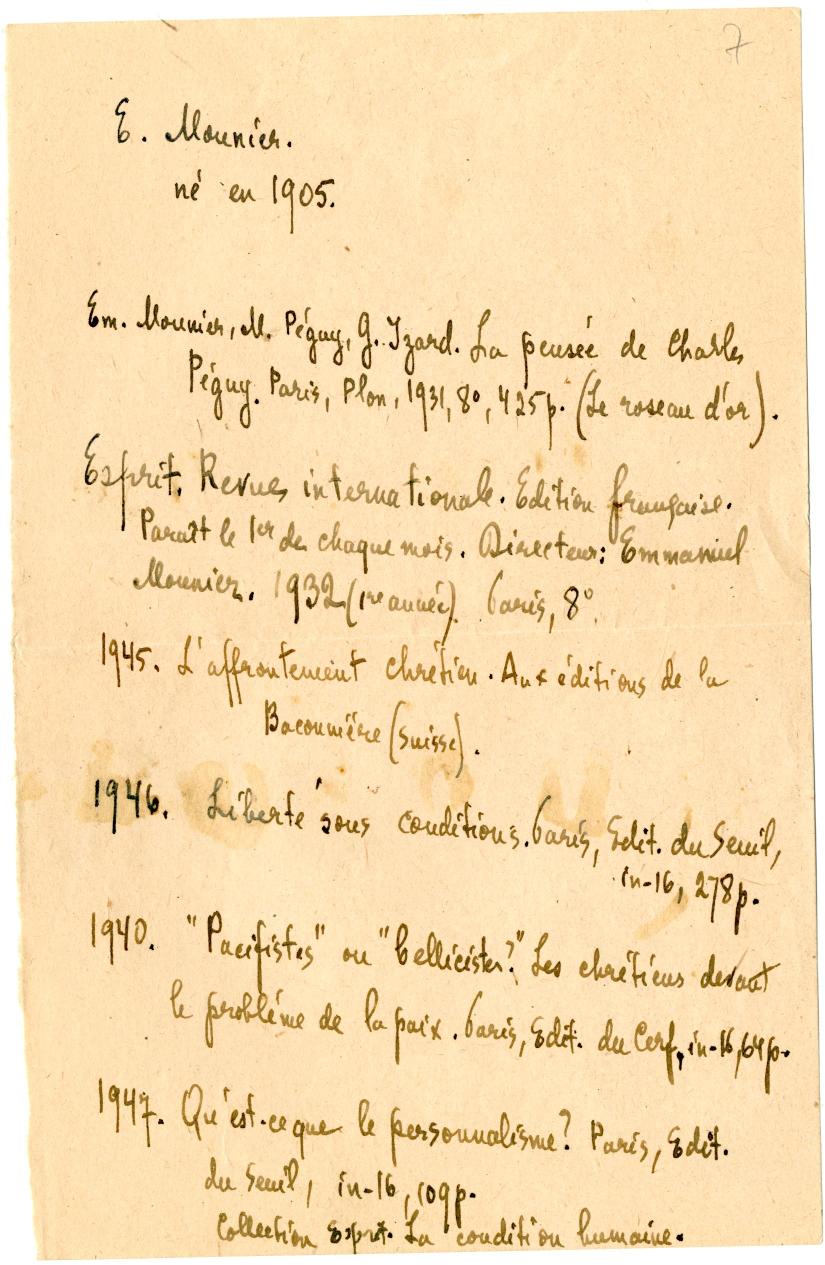 7
E. Mounier.
né en 1905.
Em. Mounier, M. Péguy, G. Izard. La pensée de Charles
Péguy. Paris, Plon, 1931, 8°, 425p. (Le roseau d'or).
Esprit. Revue internationale. Edition française.
Paraît le 1er de chaque mois. Directeur: Emmanuel
Mounier. 1932 (1re année). Paris, 8°.
1945. L'affrontement chrétien. Aux éditions de la
Baconnière (Suisse).
1946. Liberté sous conditions. Paris, Edit. du Seuil,
in-16, 278p.
1940. "Pacifistes" ou "bellicistes?" Les chrétiens devant
le problème de la paix. Paris, Edit. du Cerf, in-16, 64p.
1947. Qu'est-ce que le personnalisme? Paris, Edit.
du Seuil, in-16, 109p.
Collection Esprit. La condition humaine.